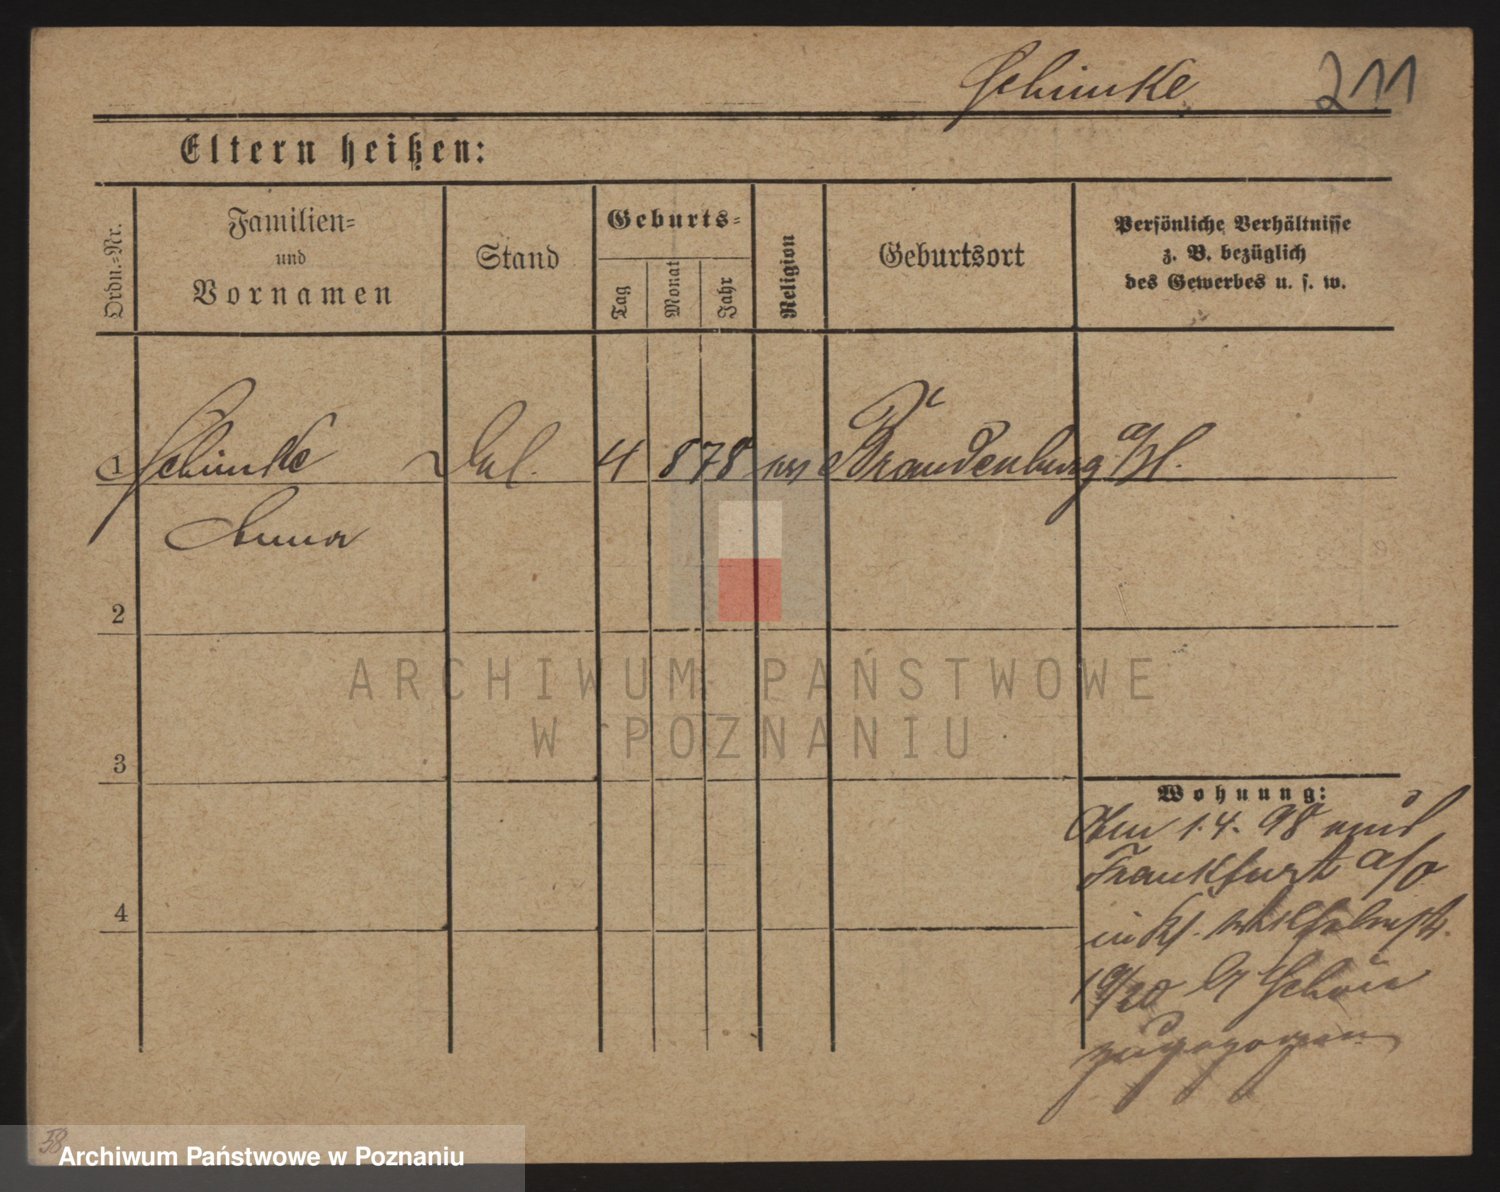 Schimke 211
Eltern heißen:
Ordn.-Nr.
Familien-
und
Vornamen
Stand
Geburts-
Tag
Monat
Jahr
Religion
Geburtsort
Persönliche Verhältnisse
z. B. bezüglich
des Gewerbes u. s. w.
1 Schimke 4 8 78 Brandenburg a/H.
Anna
2
3
4
Wohnung:
Am 1.4.98 aus
Frankfurt a/O
in Kl.
19/20 b/ Schön
zugezogen
ARCHIWUM PAŃSTWOWE
W POZNANIU
58
Archiwum Państwowe w Poznaniu